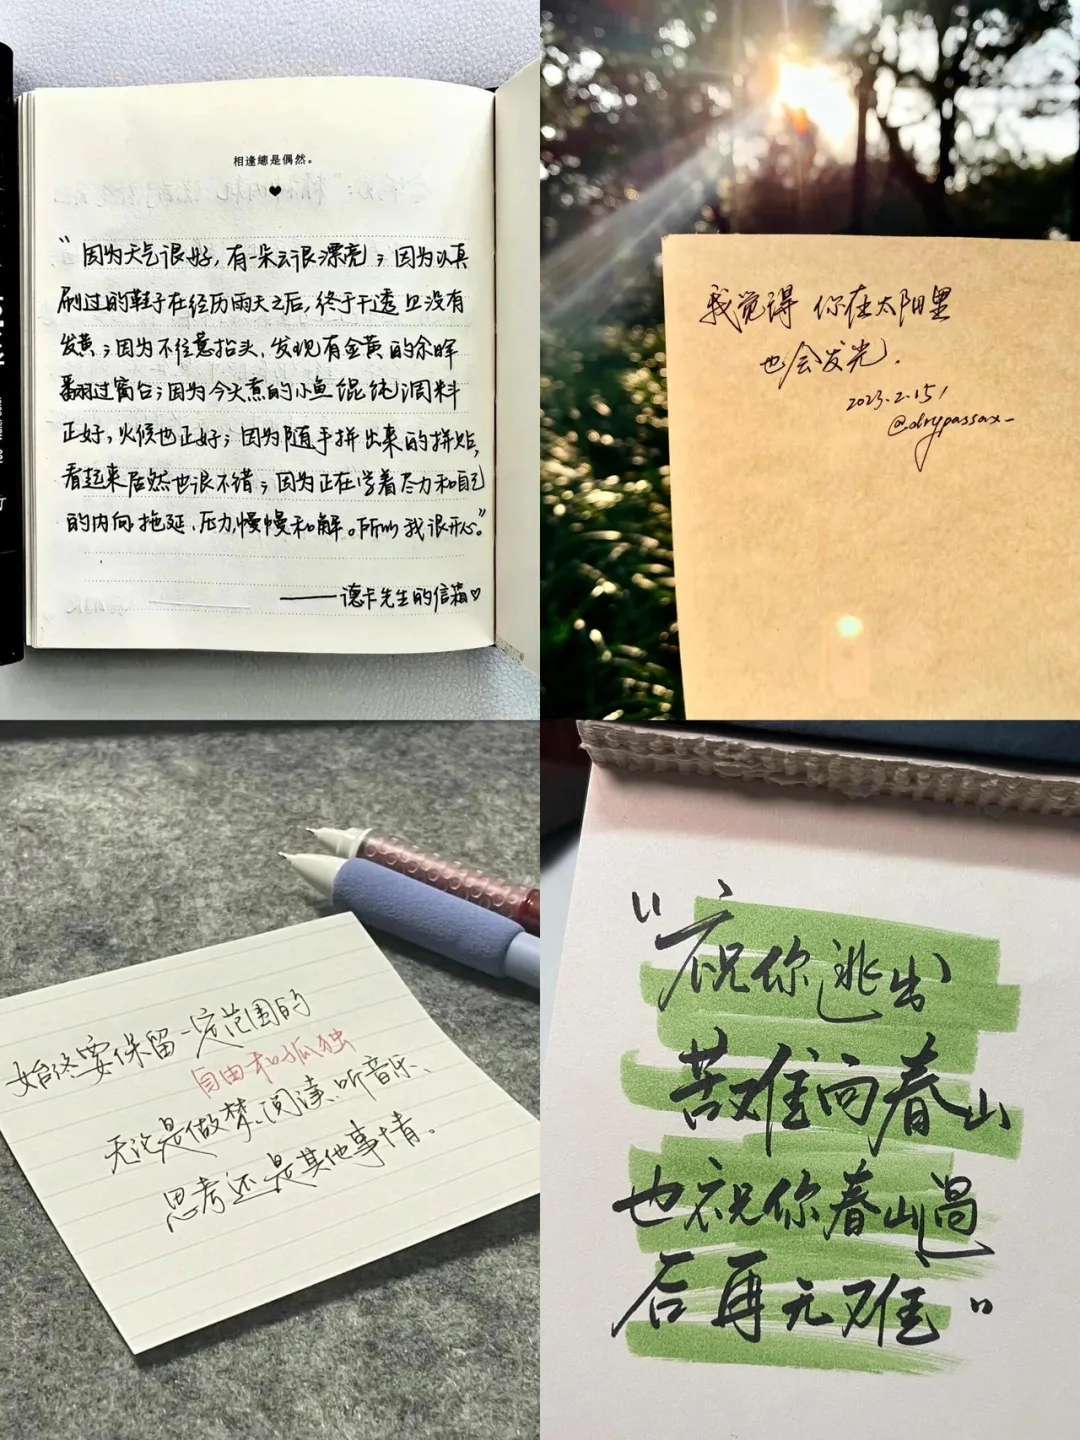 相逢總是偶然。
“因为天气很好,有一朵云很漂亮;因为认真
刷过的鞋子在经历雨天之后,终于干透且没有
发黄;因为不经意抬头,发现有金黄的余晖
翻过窗台;因为今天煮的小鱼馄饨调料
正好,火候也正好;因为随手拼出来的拼贴,
看起来居然也很不错;因为正在学着尽力和自己
的内向、拖延、压力,慢慢和解。所以我很开心。”
——德卡先生的信箱♡
我觉得 你在太阳里
也会发光.
2023.2.15/
@drypassax_
始终要保留一定范围的
自由和孤独
无论是做梦、阅读、听音乐、
思考还是其他事情。
“祝你逃出
苦难向春山
也祝你春山过
后再无难”